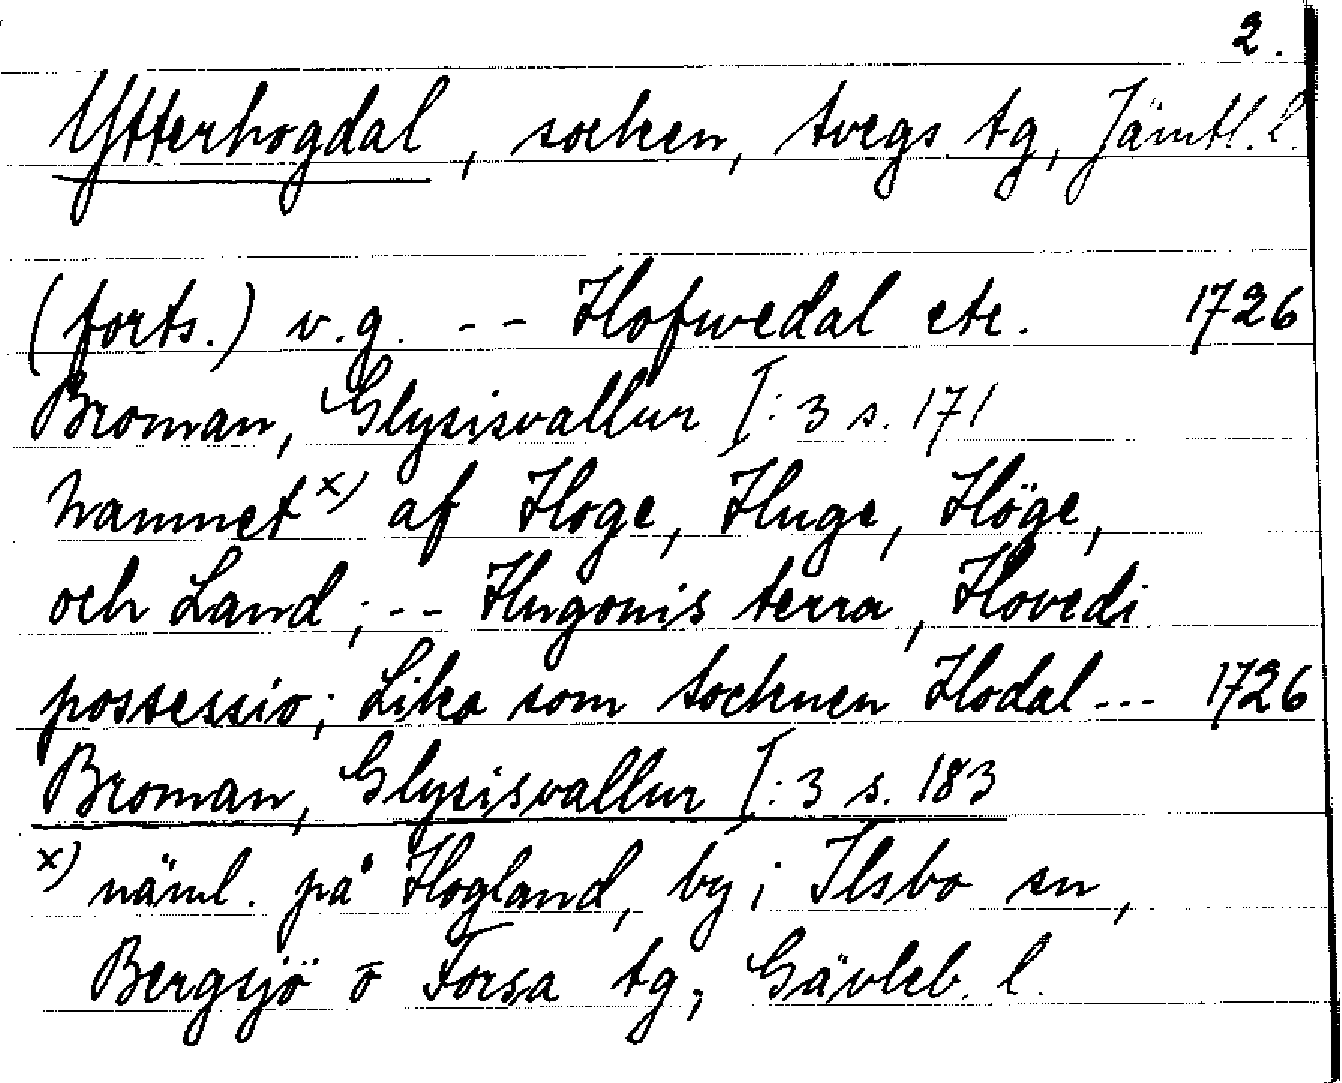 2.
Ytterhogdal, socken, Svegs tg, Jämtl. l.
(forts.) v.g. -- Hofwedal etc. 1726
Broman, Glysisvallur I:3 s. 171
namnet x) af Hoge, Huge, Höge,
och Land; -- Hugonis terra, Hovedi
possessio; Lika som Socknen Hodal --- 1726
Broman, Glysisvallur I:3 s. 183
x) näml. på Hogland, by i Ilsbo sn,
Bergsjö o Forsa tg, Gävleb. l.